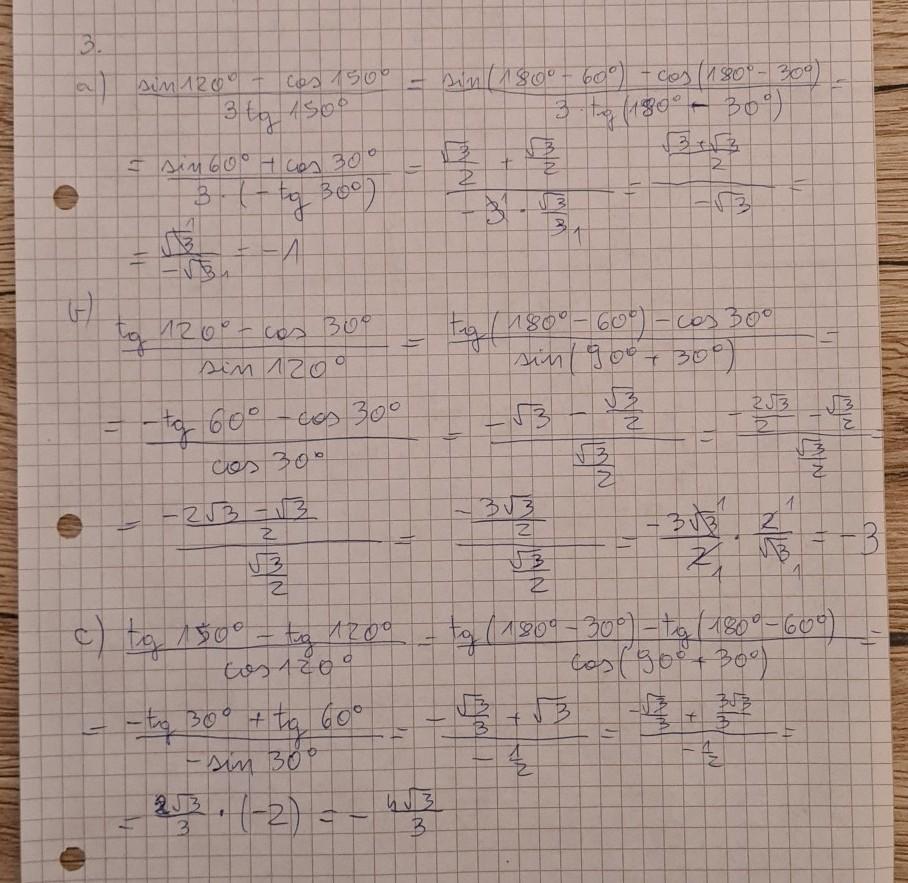 3.
a) (sin120° - cos150°)/(3tg150°) = (sin(180° - 60°) - cos(180° - 30°))/(3·tg(180° - 30°)) =
= (sin60° + cos30°)/(3·(-tg30°)) = (√3/2 + √3/2)/(-3̸¹·√3/3₁) = ((√3+√3)/2)/(-√3) =
= √3¹/(-√3₁) = -1
b) (tg120° - cos30°)/(sin120°) = (tg(180° - 60°) - cos30°)/(sin(90° + 30°)) =
= (-tg60° - cos30°)/(cos30°) = (-√3 - √3/2)/(√3/2) = (-2√3/2 - √3/2)/(√3/2) =
= ((-2√3 - √3)/2)/(√3/2) = (-3√3/2)/(√3/2) = -3√3¹/2₁ · 2¹/√3₁ = -3
c) (tg150° - tg120°)/(cos120°) = (tg(180° - 30°) - tg(180° - 60°))/(cos(90° + 30°)) =
= (-tg30° + tg60°)/(-sin30°) = (-√3/3 + √3)/(-1/2) = (-√3/3 + 3√3/3)/(-1/2) =
= 2√3/3 · (-2) = -4√3/3